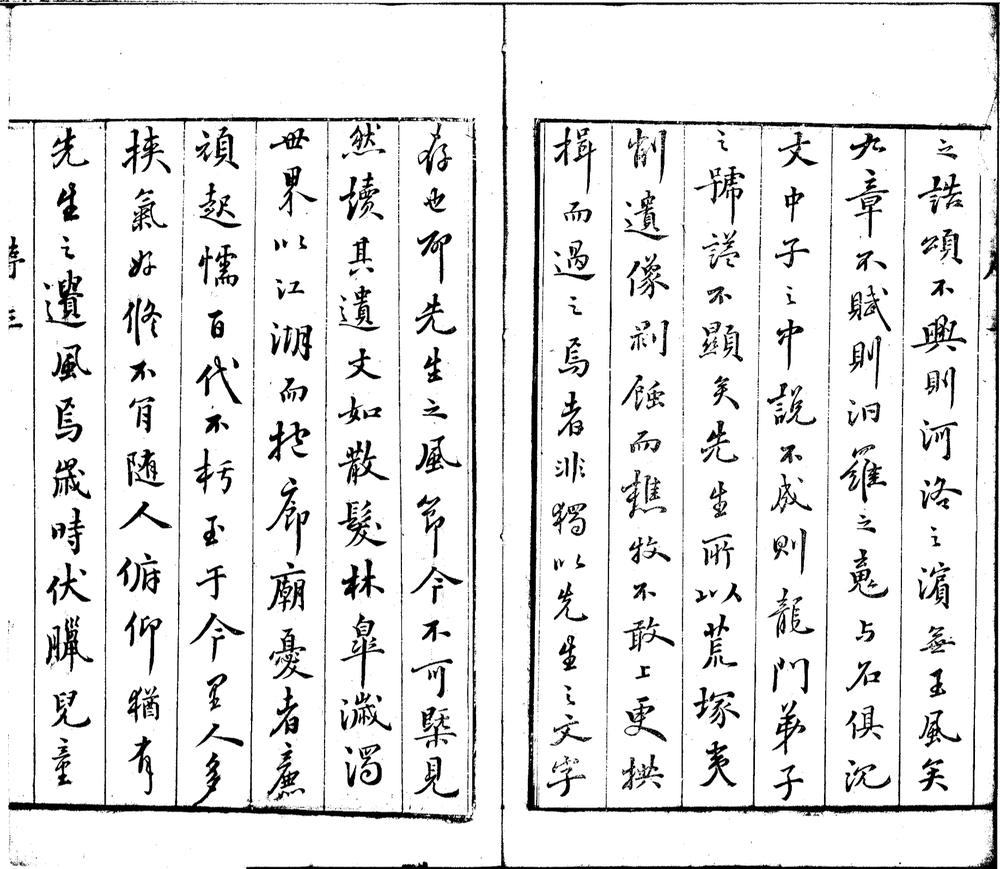 之誥頌不興則河洛之濵無王風矣
九章不賦則汨羅之䰟与石俱沉
文中子之中説不成則龍門弟子
之號諡不顯矣先生所以荒塚夷
制遺像剥蝕而樵牧不敢上更拱
揖而過之焉者非獨以先生之文字
存也耶先生之風節今不可槩見
然讀其遺文如散髮林臯濊濁
世界以江湖而抱廊廟憂者廉
頑起懦百代不朽至于今里人多
挟氣好修不肎随人俯仰猶有
先生之遺風焉嵗時伏臘兒童